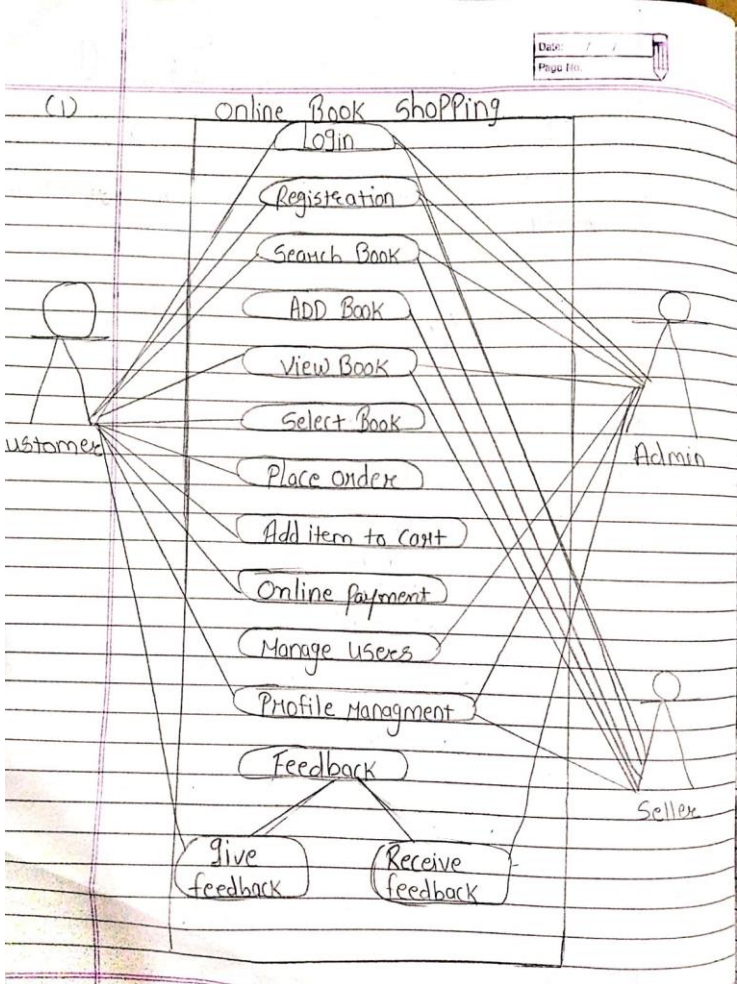 Date: / /
Page No.
(1) online Book shopping
Login
Registration
Search Book
ADD Book
View Book
Select Book
ustomer
Admin
Place order
Add item to cart
Online Payment
Manage users
Profile Managment
Feedback
Seller
give
feedback
Receive
feedback